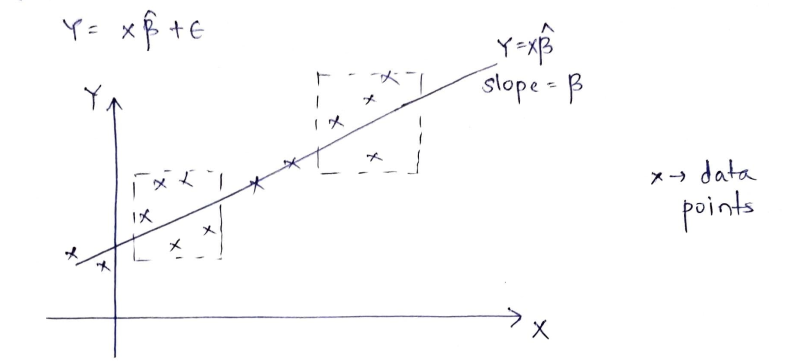 Y = xβ̂ + ϵ
Y = xβ̂
slope = β
Y
x → data
points
X